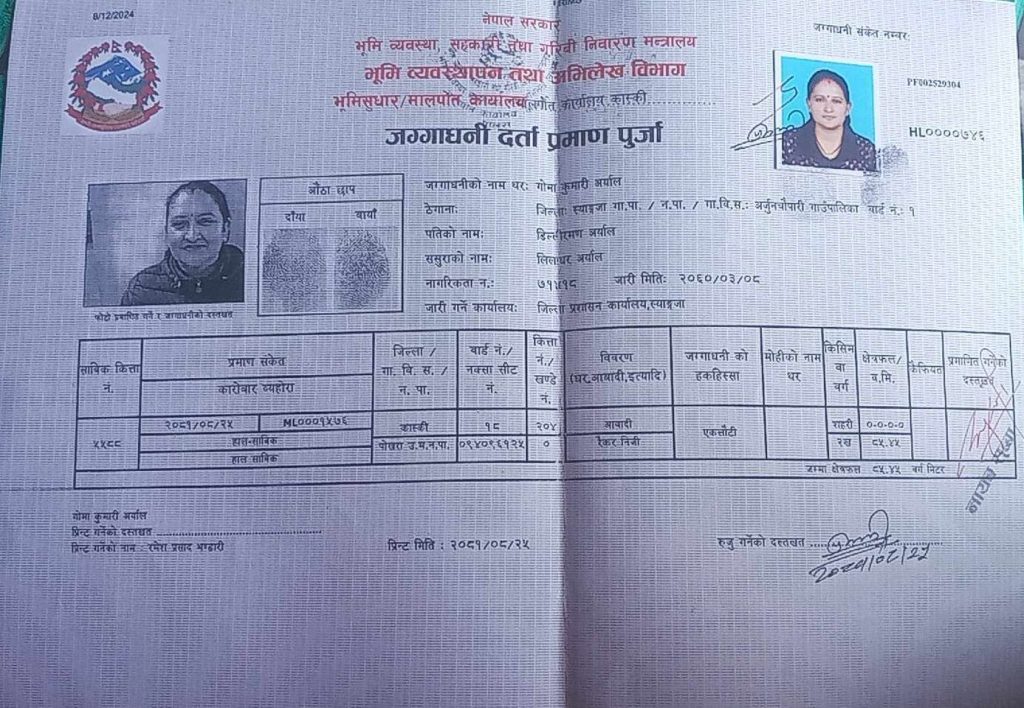 8/12/2024
नेपाल सरकार
भूमि व्यवस्था, सहकारी तथा गरिवी निवारण मन्त्रालय
भूमि व्यवस्थापन तथा अभिलेख विभाग
भूमिसुधार/मालपोत कार्यालय कार्यालय, कास्की
जग्गाधनी दर्ता प्रमाण पुर्जा
जग्गाधनी संकेत नम्बर:
PF002529304
HL0000७४६
औंठा छाप
दाँया बायाँ
फोटो प्रमाणित गर्ने र जग्गाधनीको दस्तखत
जग्गाधनीको नाम थर: गोमा कुमारी अर्याल
ठेगाना: जिल्ला: स्याङ्जा गा.पा. / न.पा. / गा.वि.स.: अर्जुनचौपारी गाउँपालिका वार्ड नं.: १
पतिको नाम: डिल्लीरमण अर्याल
ससुराको नाम: लिलाधर अर्याल
नागरिकता न.: जारी मिति: २०६०/०३/०८
जारी गर्ने कार्यालय: जिल्ला प्रशासन कार्यालय,स्याङ्जा
साबिक कित्ता नं. प्रमाण संकेत कारोबार व्यहोरा जिल्ला / गा. वि. स. / न. पा. वार्ड नं./ नक्सा सीट नं. कित्ता नं./ खण्ड नं. विवरण (घर,आवादी,इत्यादि) जग्गाधनी को हकहिस्सा मोहीको नाम थर किसिम वा वर्ग क्षेत्रफल/ व.मि. कैफियत प्रमाणित गर्नेको दस्तखत
५५८८ २०८१/०८/२५ ML000१५७६ कास्की १८ २०४ आवादी एकलौटी शहरी ०-०-०-०
हाल-साबिक पोखरा उ.म.न.पा. ०९४०९६१२५ ० रैकर निजी २ख ८५.४५
हाल साबिक
जम्मा क्षेत्रफल ८५.४५ वर्ग मिटर
नायव सुब्बा
गोमा कुमारी अर्याल
प्रिन्ट गर्नेको दस्तखत
प्रिन्ट गर्नेको नाम : रमेश प्रसाद भण्डारी
प्रिन्ट मिति : २०८१/०८/२५
रुजु गर्नेको दस्तखत
२०८१/०८/२५